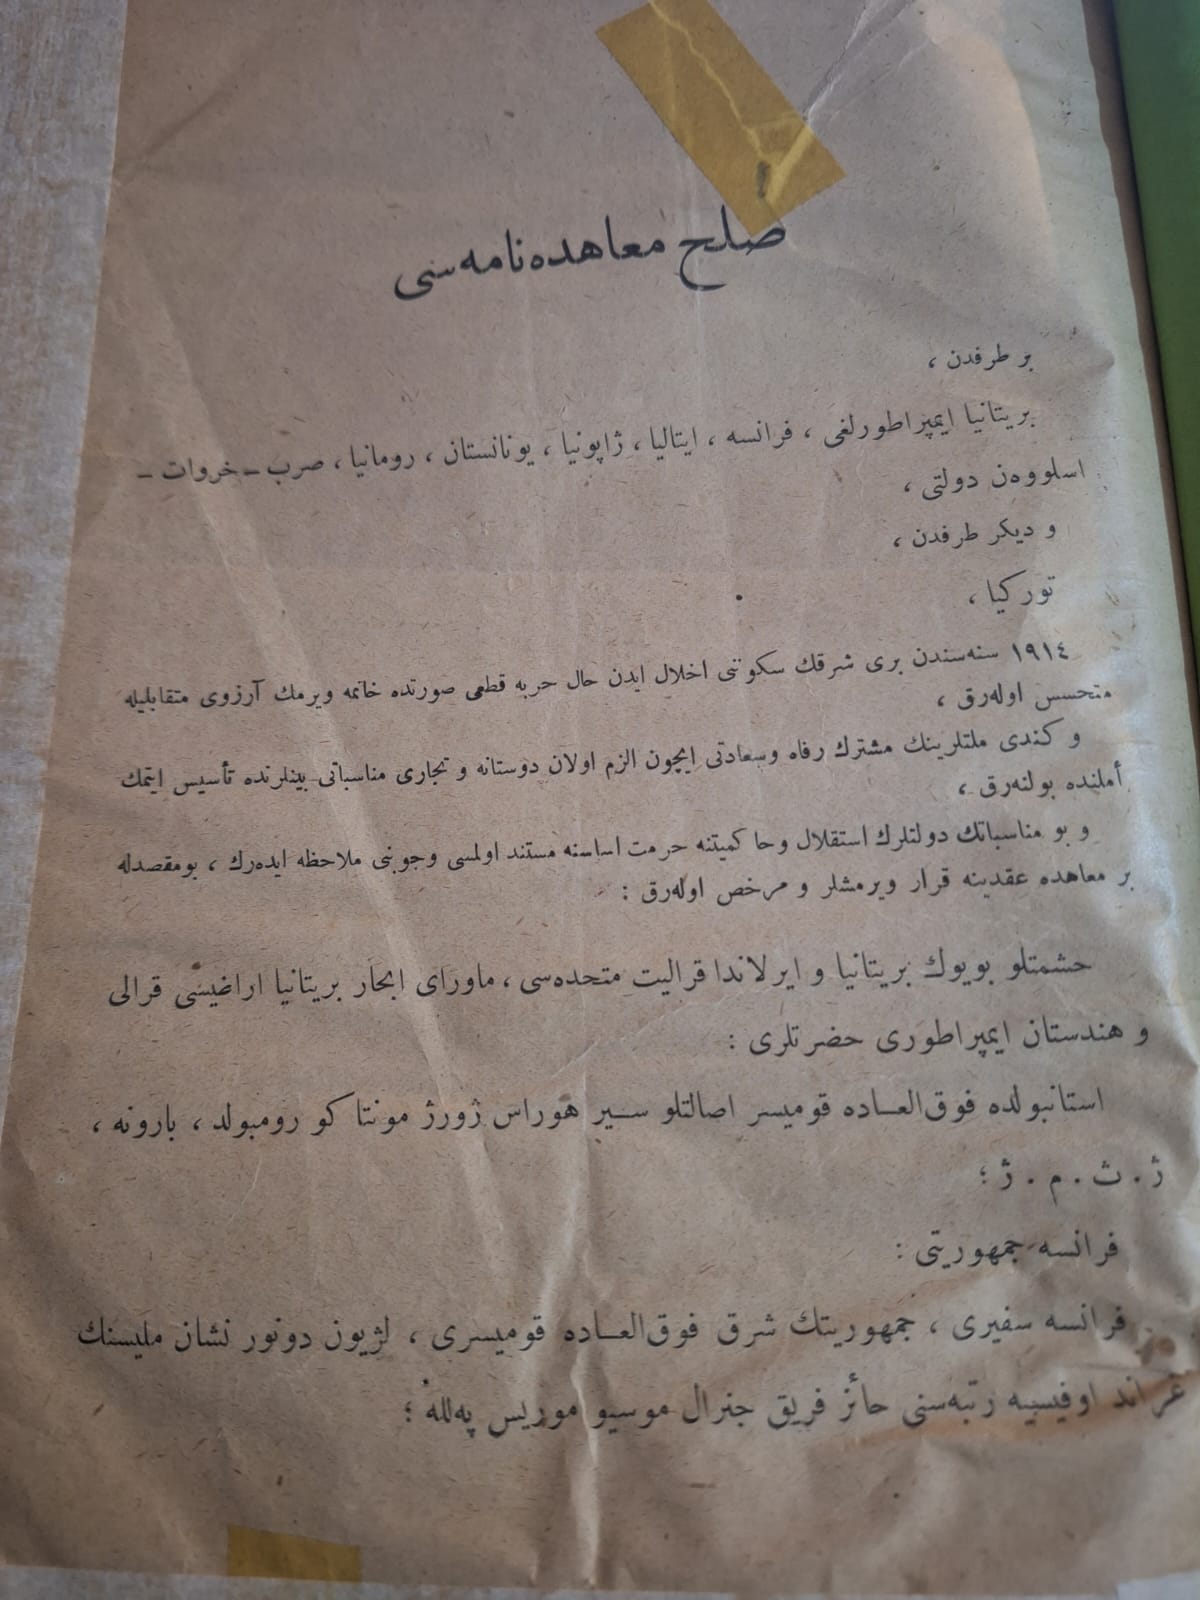 صلح معاهده‌نامه‌سی
بر طرفدن ،
بریتانیا ایمپراطورلغی ، فرانسه ، ایتالیا ، ژاپونیا ، یونانستان ، رومانیا ، صرب ـ خروات ـ
اسلووه‌ن دولتی ،
و دیكر طرفدن ،
توركیا ،
١٩١٤ سنه‌سندن بری شرقك سكوتنی اخلال ایدن حال حربه قطعی صورتده خاتمه ویرمك آرزوی متقابلیله
متحسس اوله‌رق ،
و كندی ملتلرینك مشترك رفاه وسعادتی ایچون الزم اولان دوستانه و تجاری مناسباتی بینلرنده تأسیس ایتمك
أملنده بولنه‌رق ،
و بو مناسباتك دولتلرك استقلال وحاكمیتنه حرمت اساسنه مستند اولمسی وجوبنی ملاحظه ایده‌رك ، بومقصدله
بر معاهده عقدینه قرار ویرمشلر و مرخص اوله‌رق :
حشمتلو بویوك بریتانیا و ایرلاندا قرالیت متحده‌سی ، ماورای ابحار بریتانیا اراضیسی قرالی
و هندستان ایمپراطوری حضرتلری :
استانبولده فوق‌العـاده قومیسر اصالتلو سـیر هوراس ژورژ مونتاكو رومبولد ، بارونه ،
ژ . ث . م . ژ ؛
فرانسه جمهوریتی :
فرانسه سفیری ، جمهوریتك شرق فوق‌العـاده قومیسری ، لژیون دونور نشان ملیسنك
غراند اوفیسیه رتبه‌سنی حائز فریق جنرال موسیو موریس په‌لله ؛